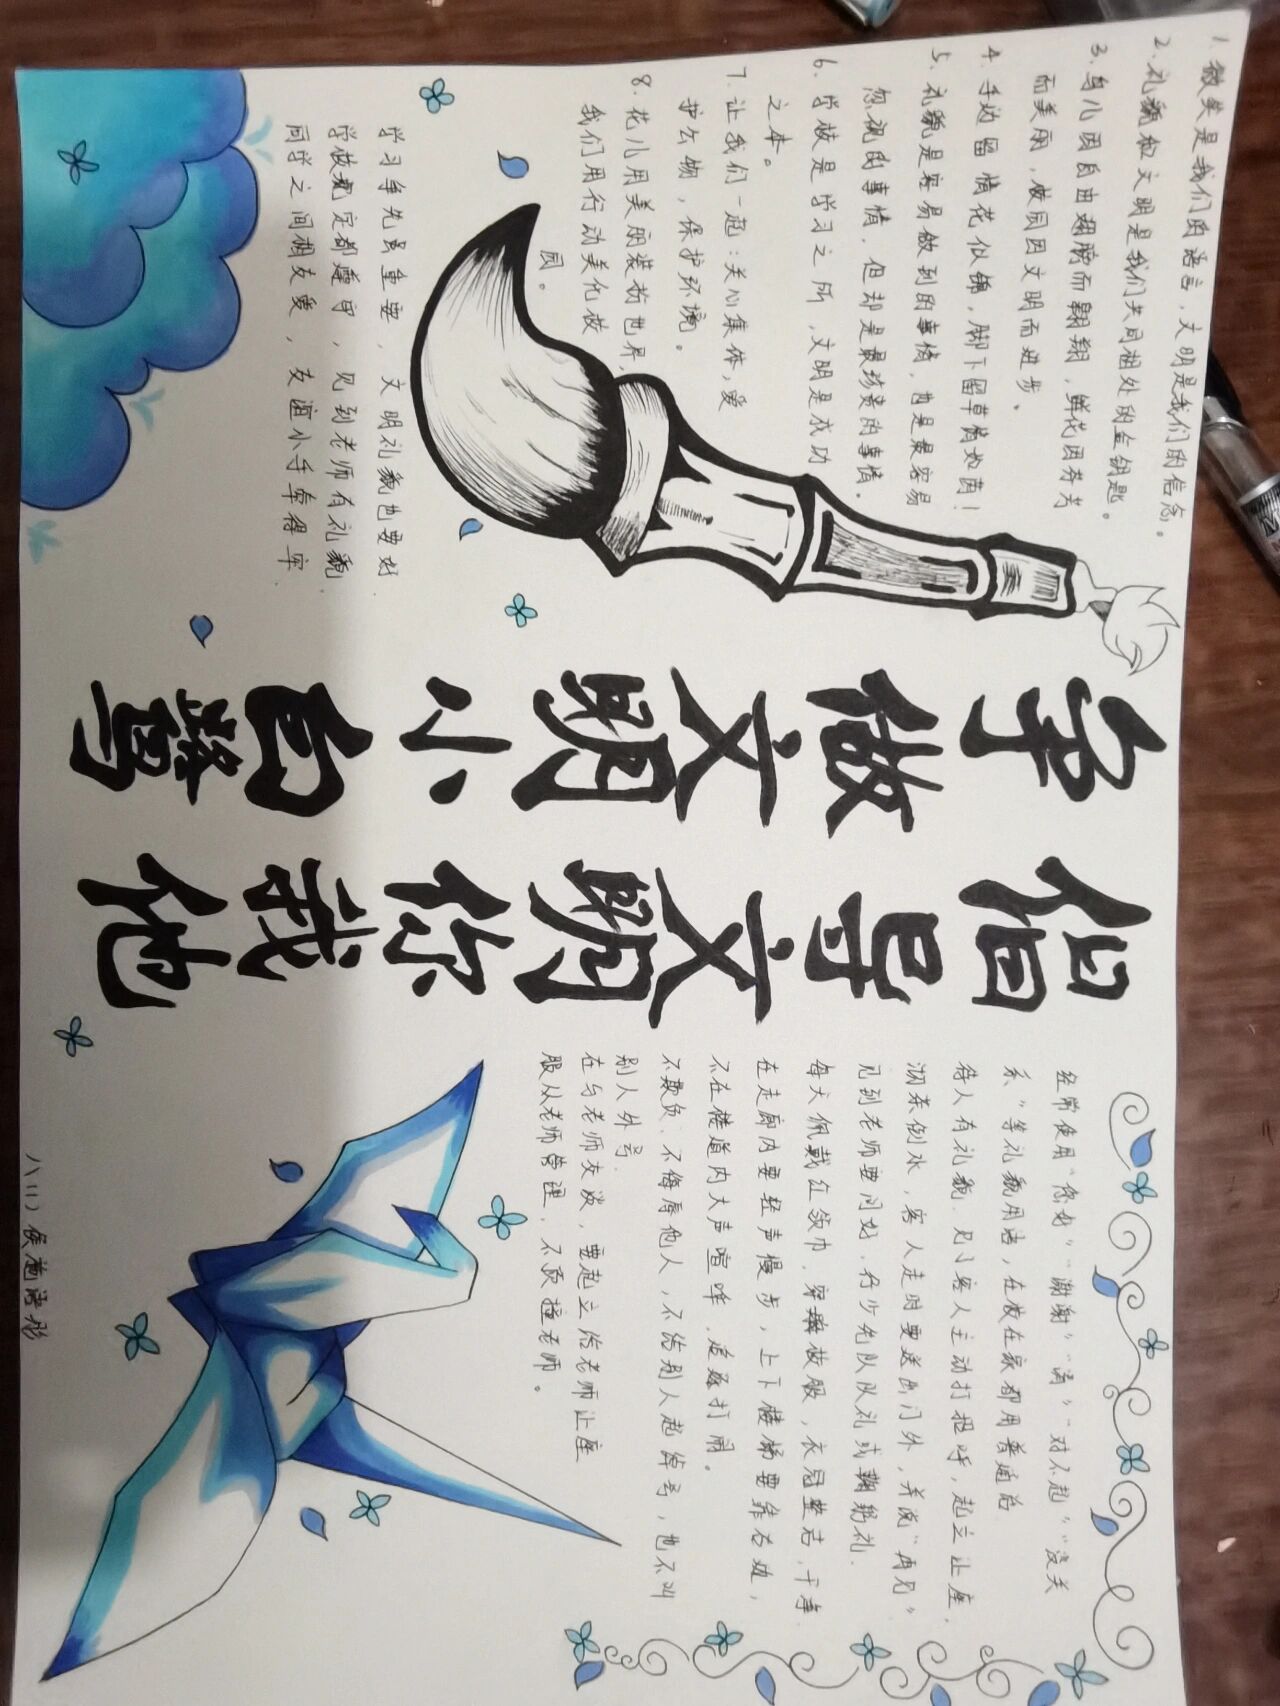 1.微笑是我们的语言，文明是我们的信念。
2.礼貌和文明是我们共同相处的金钥匙。
3.鸟儿因自由翅膀而翱翔，鲜花因芬芳
而美丽，校园因文明而进步。
4.手边留情花似锦，脚下留草情如茵！
5.礼貌是容易做到的事情，也是最容易
忽视的事情，但却是最珍贵的事情。
6.学校是学习之所，文明是成功
之本。
7.让我们一起：关心集体，爱
护公物，保护环境。
8.花儿用美丽装扮世界，
我们用行动美化校
园。
学习争先虽重要，文明礼貌也要好
学校规定都遵守，见到老师有礼貌
同学之间相友爱，友谊小手牵得牢.
争做文明小白鹭
倡导文明你我他
经常使用“您好”“谢谢”“请”“对不起”“没关
系”等礼貌用语，在校在家都用普通话
待人有礼貌，见了客人主动打招呼，起立让座，
沏茶倒水，客人走时要送出门外，并说“再见”
见到老师要问好，行少先队队礼或鞠躬礼.
每天佩戴红领巾，穿校服，衣冠整洁，干净
在走廊内要轻声慢步，上下楼梯要靠右边，
不在楼道内大声喧哗，追逐打闹。
不欺负、不侮辱他人，不给别人起绰号，也不叫
别人外号.
在与老师交谈，要起立给老师让座
服从老师管理，不顶撞老师。
八（二）侯